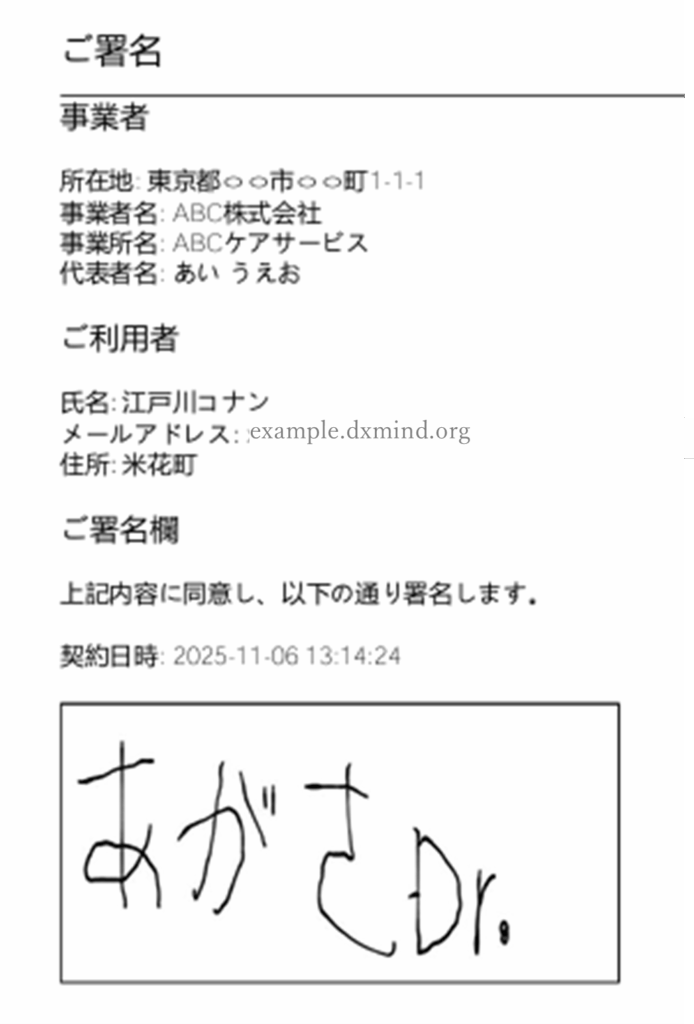 ご署名
事業者
所在地: 東京都○○市○○町1-1-1
事業者名: ABC株式会社
事業所名: ABCケアサービス
代表者名: あい うえお
ご利用者
氏名: 江戸川コナン
メールアドレス: example.dxmind.org
住所: 米花町
ご署名欄
上記内容に同意し、以下の通り署名します。
契約日時: 2025-11-06 13:14:24
あがさDr.